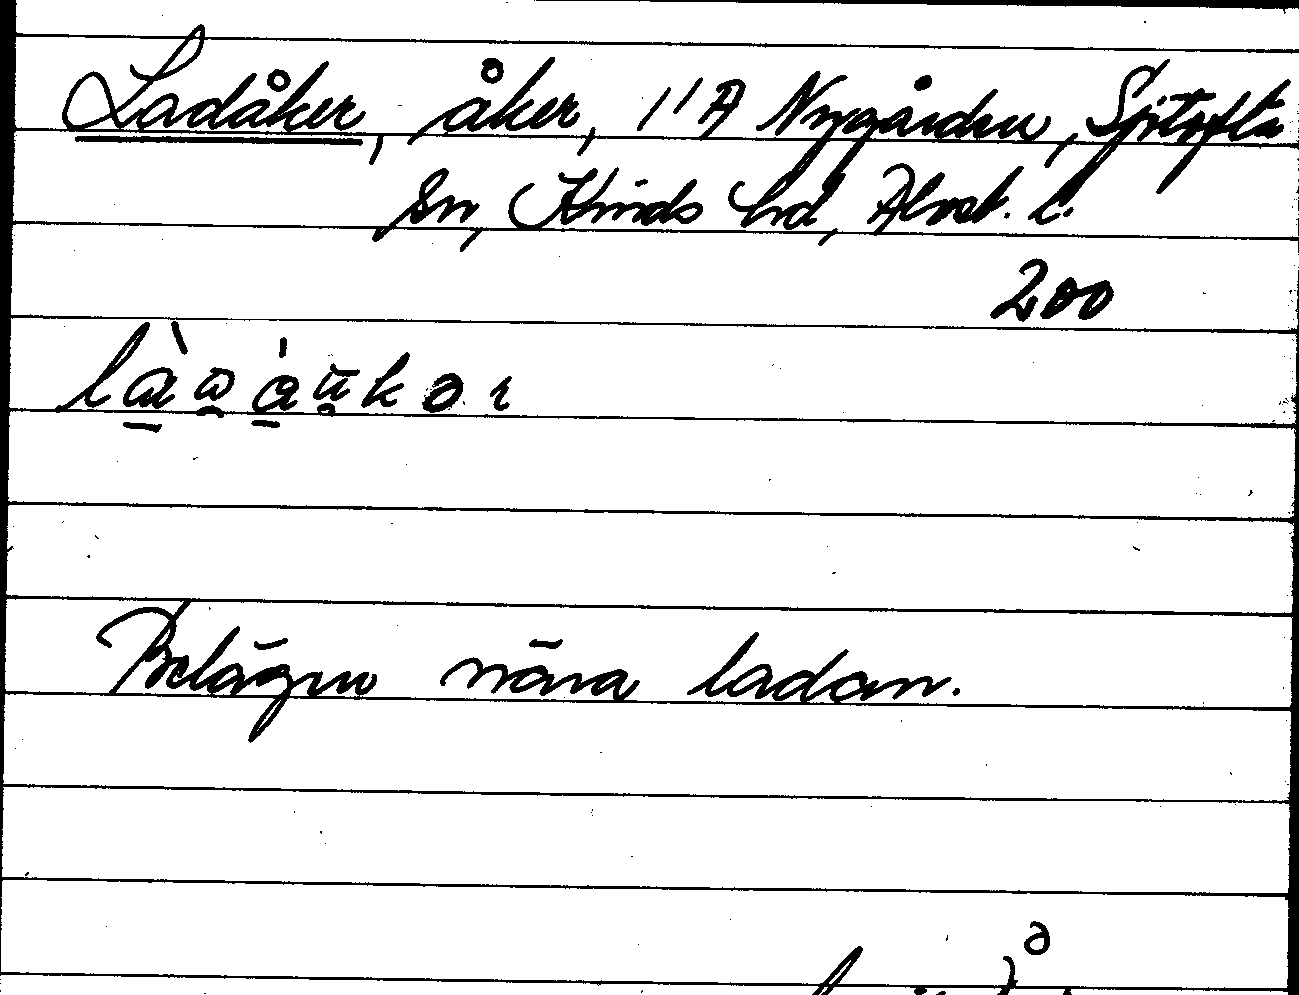 Ladåker, åker, 1/1 A Nygården, Sjötofta
sn, Kinds hd, Älvsb. l.
200
Belägen nära ladan.